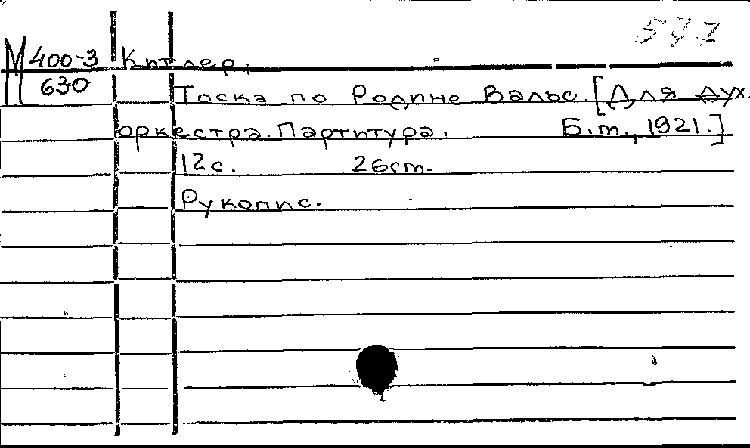 597
М 400-3 Китлер.
630
Тоска по Родине Вальс. [Для дух.
оркестра. Партитура. Б.т., 1921.]
12с. 26cm.
Рукопис.